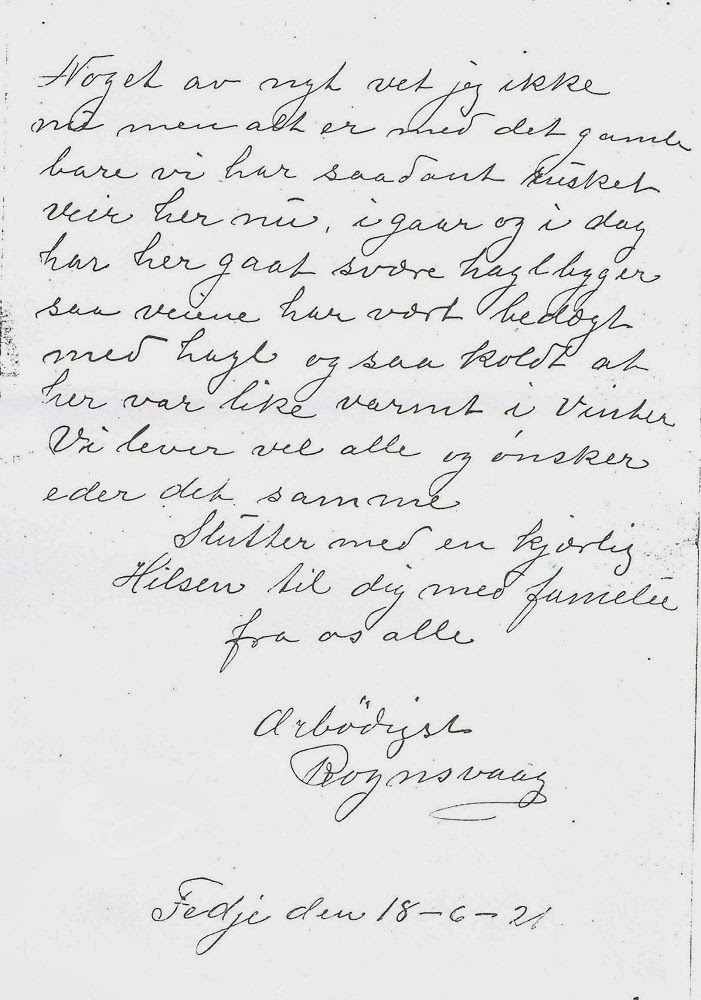 Noget av nyt vet jeg ikke
nu men alt er med det gamle
bare vi har saadant rusket
veir her nu, i gaar og i dag
har her gaat svære haglbyger
saa veiene har vært bedægt
med hagl og saa koldt at
her var like varmt i Vinter
Vi lever vel alle og ønsker
eder det samme
Slutter med en kjærlig
Hilsen til dig med famelie
fra os alle
Ærbödigst
Rognsvaag
Fedje den 18-6-21